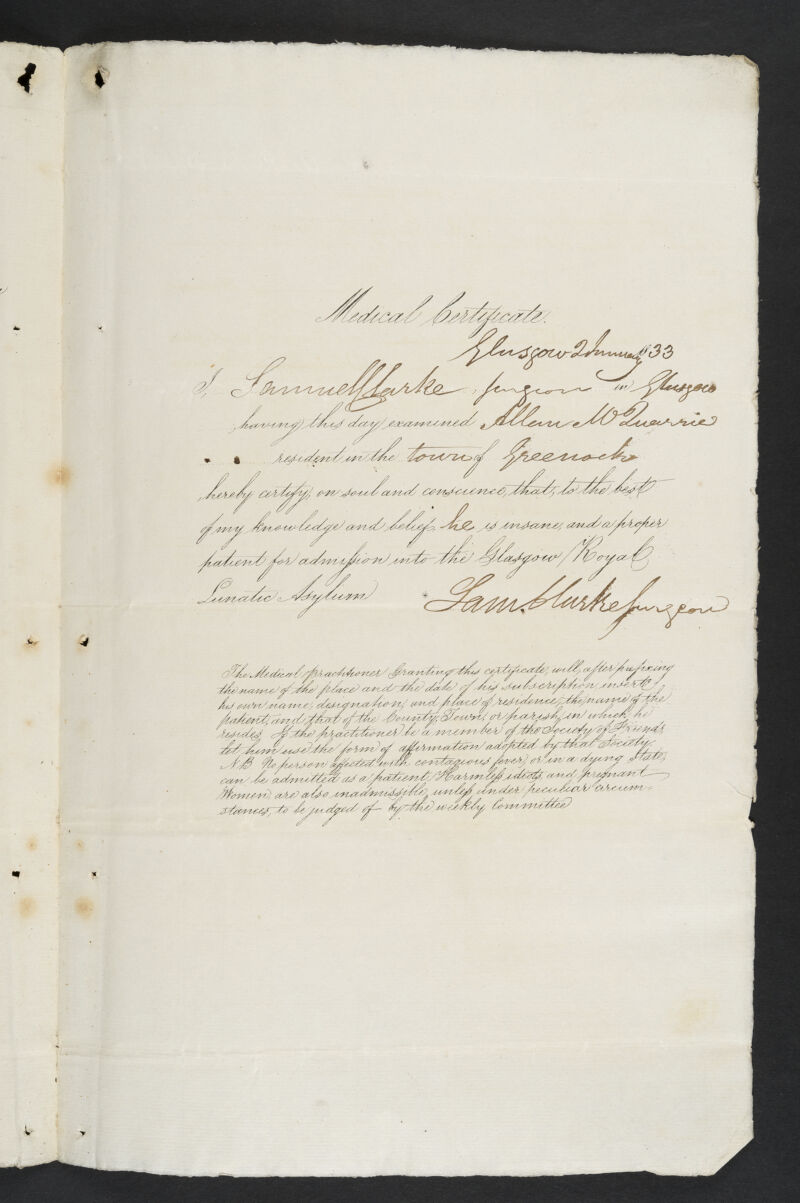 Medical Certificate.
Glasgow 2 January 1833
I, Samuel Clarke, surgeon in Glasgow
having this day examined Allan McQuarrie
resident in the town of Greenock
hereby certify, on soul and conscience, that, to the best
of my knowledge and belief, he is insane, and a proper
patient for admission into the Glasgow Royal
Lunatic Asylum
Sam. Clarke surgeon
The Medical practitioner Granting this certificate, will, after prefixing
the name of the place and the date of his subscription, insert
his own name, designation, and place of residence, the name of the
patient, and that of the County, Town, or parish, in which he
resides. If the practitioner be a member of the Society of Friends,
let him use the form of affirmation adopted by that Society.
N.B. No person affected with contagious fever, or in a dying State,
can be admitted as a patient. Harmless idiots, and pregnant
Women, are also inadmissible, unless under peculiar circum-
stances, to be judged of by the weekly Committee